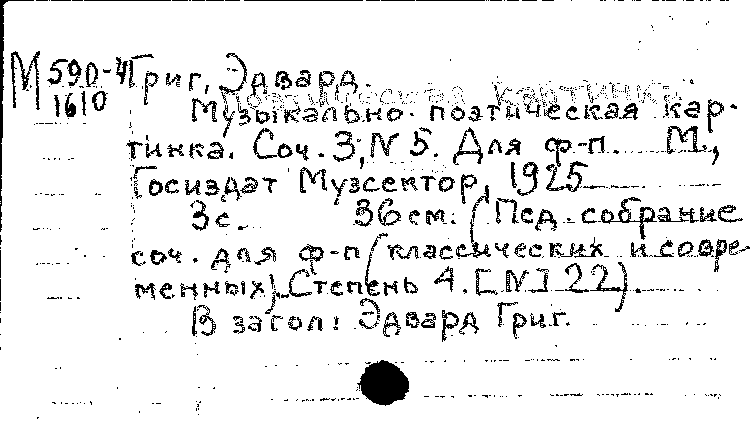 М 590-4 Григ, Эдвард.
1610 Музыкально-поэтическая кар-
тинка. Соч. 3, N 5. Для ф-п. М.,
Госиздат Музсектор, 1925
3с. 36 см. (Пед. собрание
соч. для ф-п (классических и совре
менных). Степень 4. [N] 22).
В загол: Эдвард Григ.